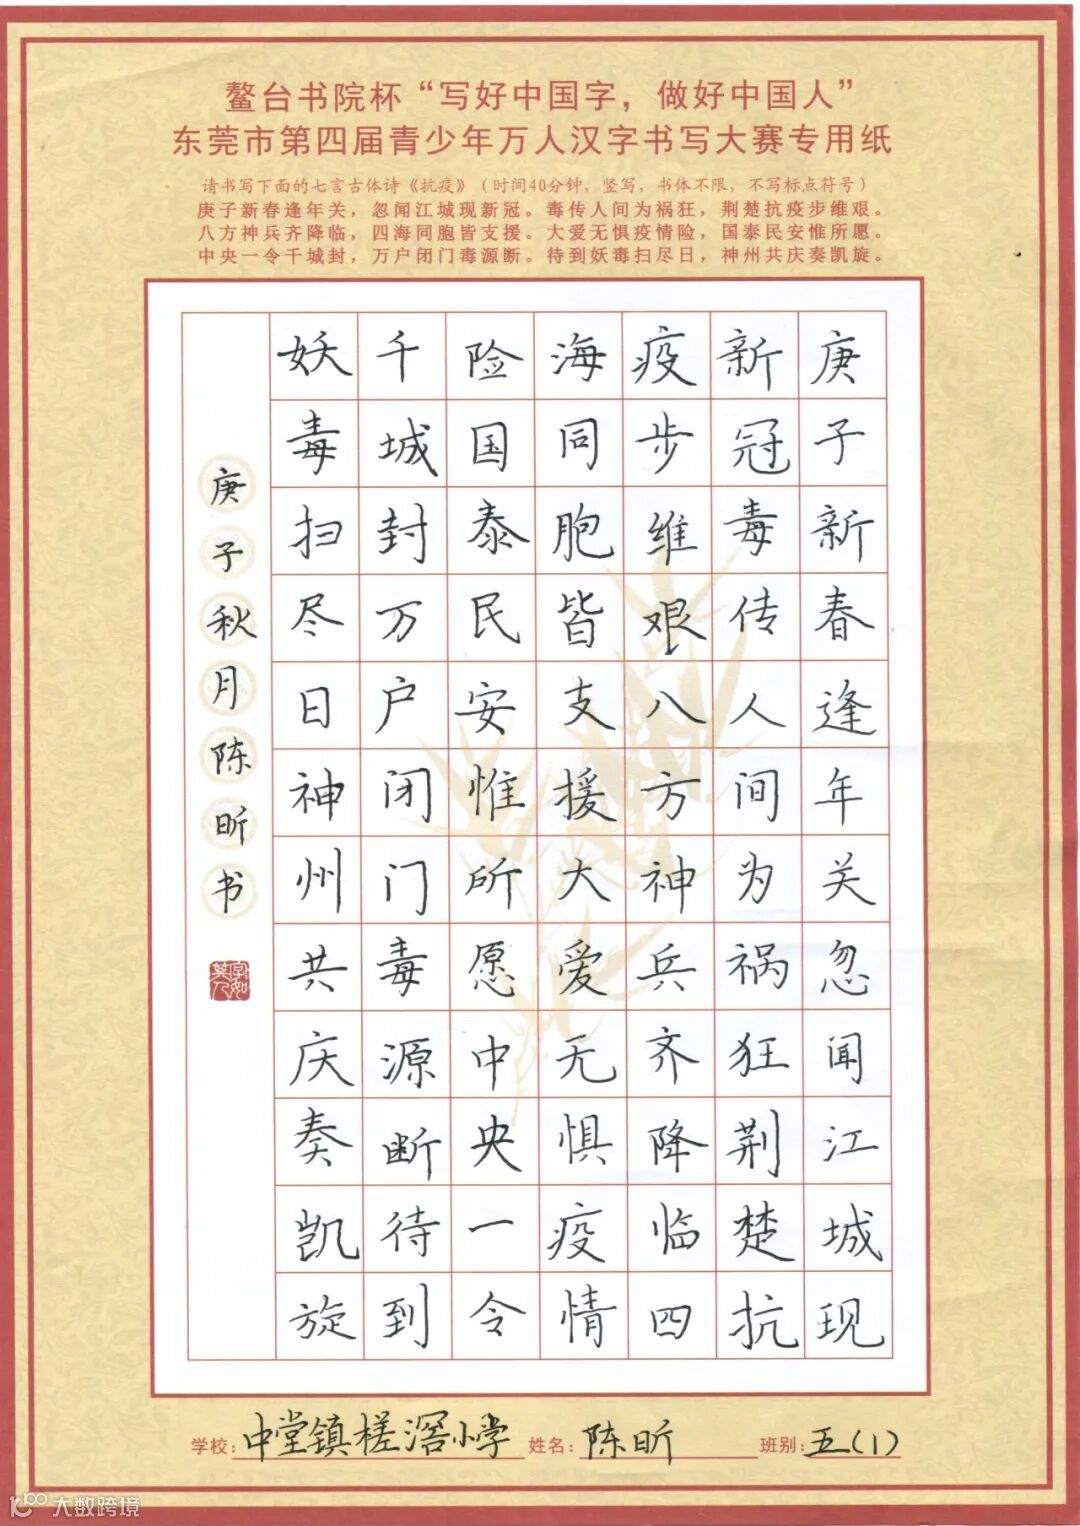 鳌台书院杯“写好中国字，做好中国人”
东莞市第四届青少年万人汉字书写大赛专用纸
请书写下面的七言古体诗《抗疫》（时间40分钟，竖写，书体不限，不写标点符号）
庚子新春逢年关，忽闻江城现新冠。毒传人间为祸狂，荆楚抗疫步维艰。
八方神兵齐降临，四海同胞皆支援。大爱无惧疫情险，国泰民安惟所愿。
中央一令千城封，万户闭门毒源断。待到妖毒扫尽日，神州共庆奏凯旋。
庚子新春逢年关忽闻江城现
新冠毒传人间为祸狂荆楚抗
疫步维艰八方神兵齐降临四
海同胞皆支援大爱无惧疫情
险国泰民安惟所愿中央一令
千城封万户闭门毒源断待到
妖毒扫尽日神州共庆奏凯旋
庚子秋月陈昕书
字如其人
学校：中堂镇槎滘小学 姓名：陈昕 班别：五（1）
大数跨境